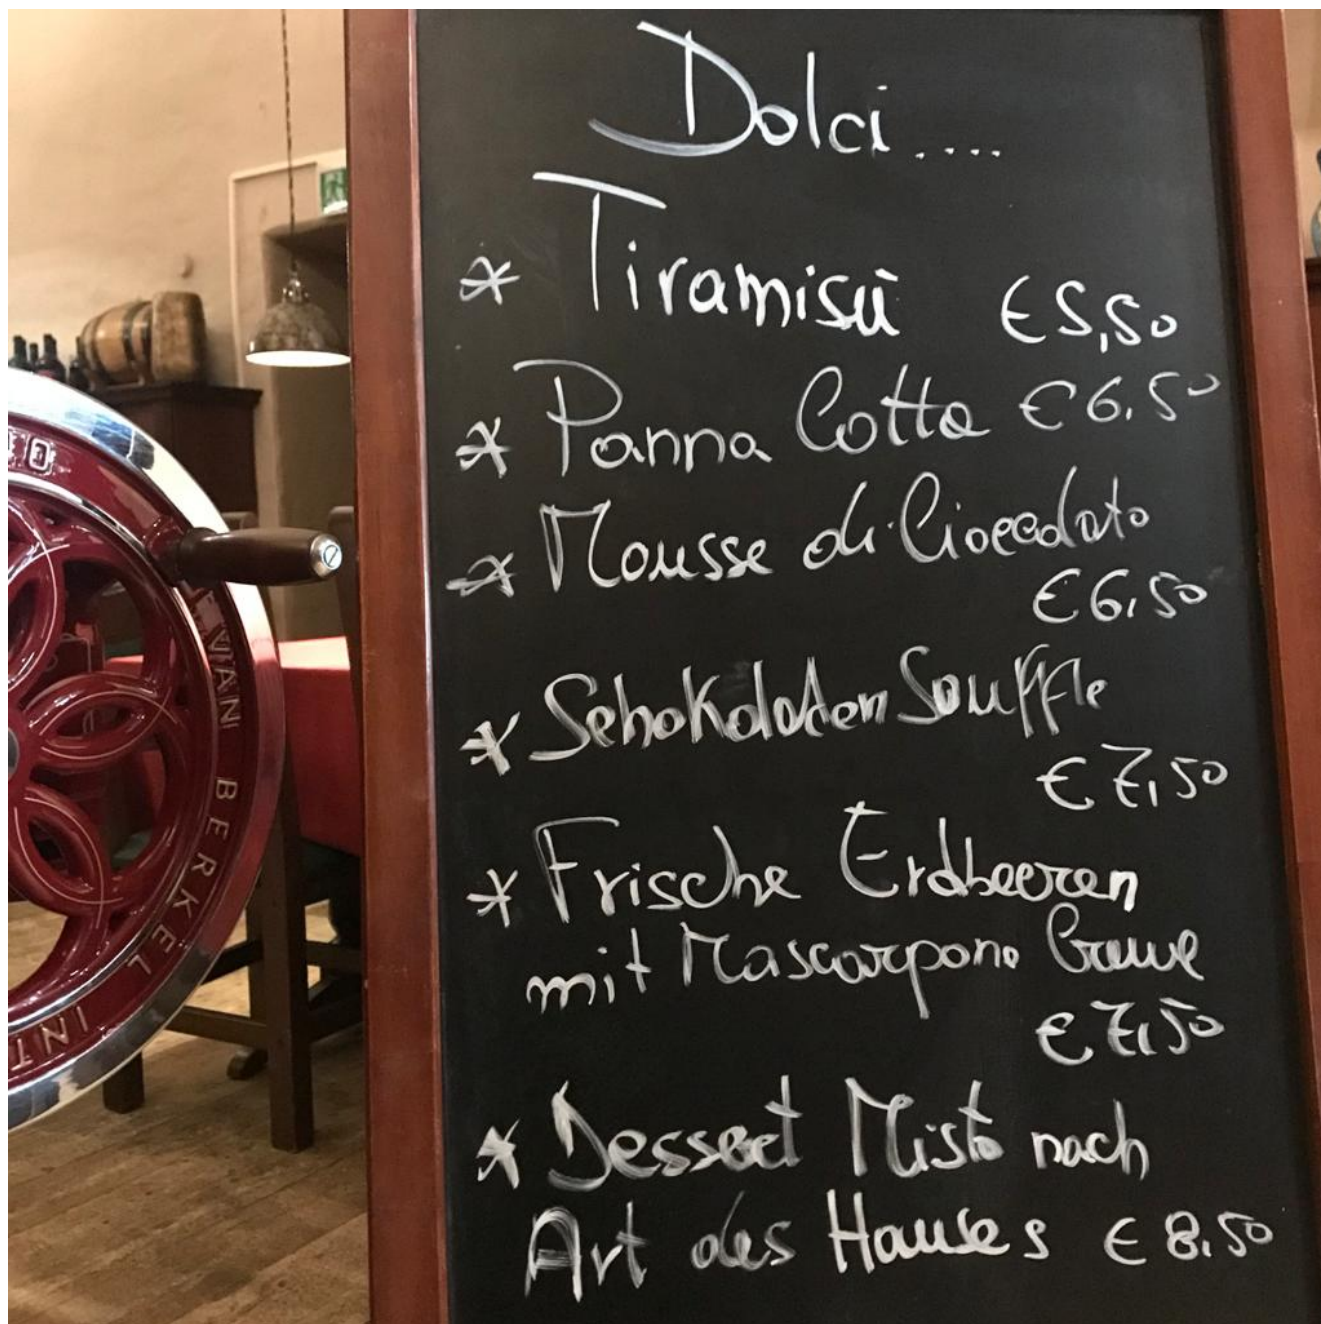 Dolci....
* Tiramisù €5,50
* Panna Cotta €6,50
* Mousse di Cioccolato
€6,50
* Schokoladen Souffle
€7,50
* Frische Erdbeeren
mit Mascarpone Creme
€7,50
* Dessert Misto nach
Art des Hauses €8,50
VAN BERKEL